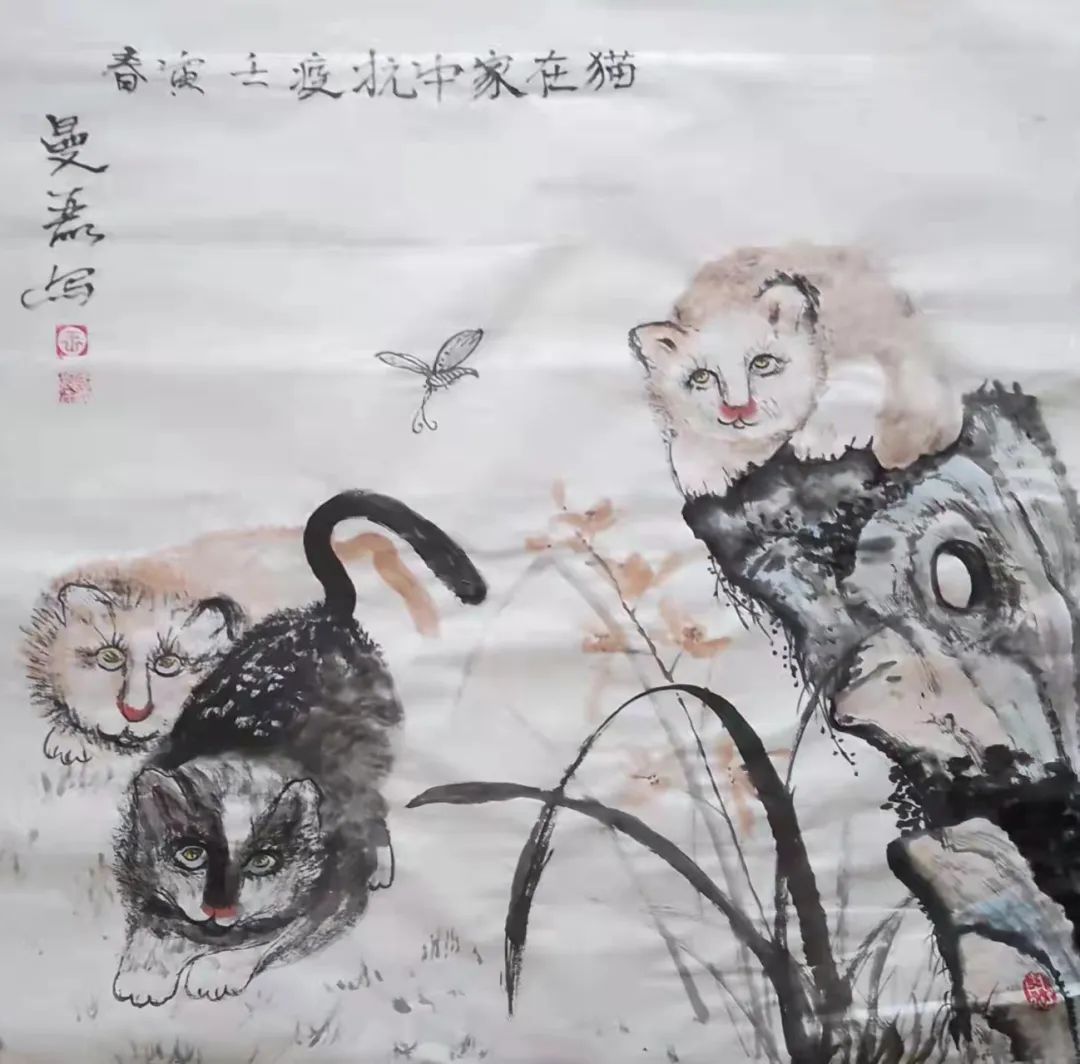 猫在家中抗疫壬寅春
曼磊写